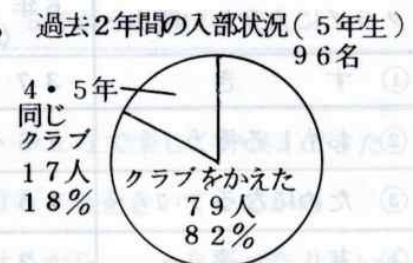 過去2年間の入部状況(5年生)
96名
4・5年
同じ
クラブ
17人
18%
クラブをかえた
79人
82%